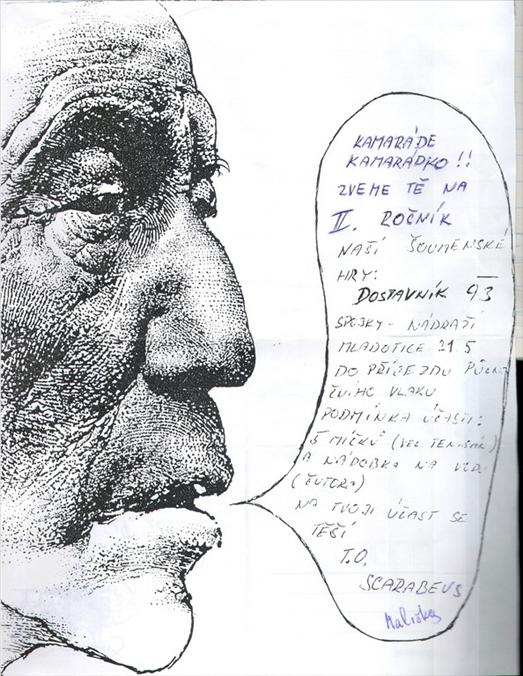 KAMARÁDE
KAMARÁDKO!!
ZVEME TĚ NA
II. ROČNÍK
NAŠÍ ŠOUMENSKÉ
HRY:
DOSTAVNÍK 93
SPOJKY - NÁDRAŽÍ
MLADOTICE 21.5
DO PŘÍJEZDU PŮLNO
ČNÍHO VLAKU
PODMÍNKA ÚČASTI:
5 MÍČKŮ (VEL TENISÁK)
A NÁDOBKA NA
(ČUTORA)
NA TVOJI ÚČAST SE
TĚŠÍ
T.O.
SCARABEUS